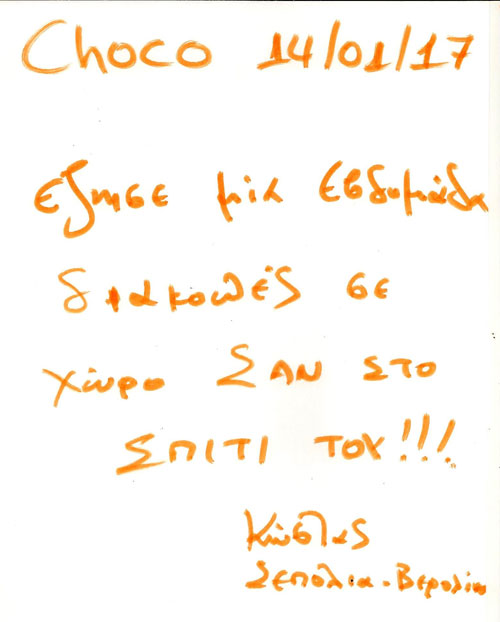 Choco 14/01/17
έζησε μία εβδομάδα
διακοπές σε
χώρο ΣΑΝ ΣΤΟ
ΣΠΙΤΙ ΤΟΥ!!!
Κώστας
Σεπόλια - Βερολίνο